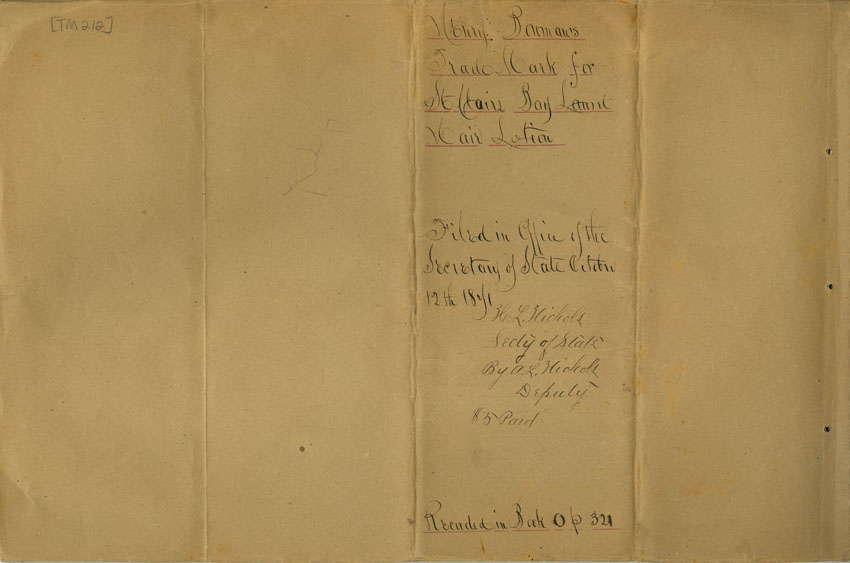 [TM 212]
Henry Bowmans
Trade Mark for
St Clairs Bay Laurel
Hair Lotion
Filed in Office of the
Secretary of State October
12th 1871
H. L. Nichols
Secty of State
By A. L. Nichols
Deputy
$5 Paid
Recorded in Book O p 321